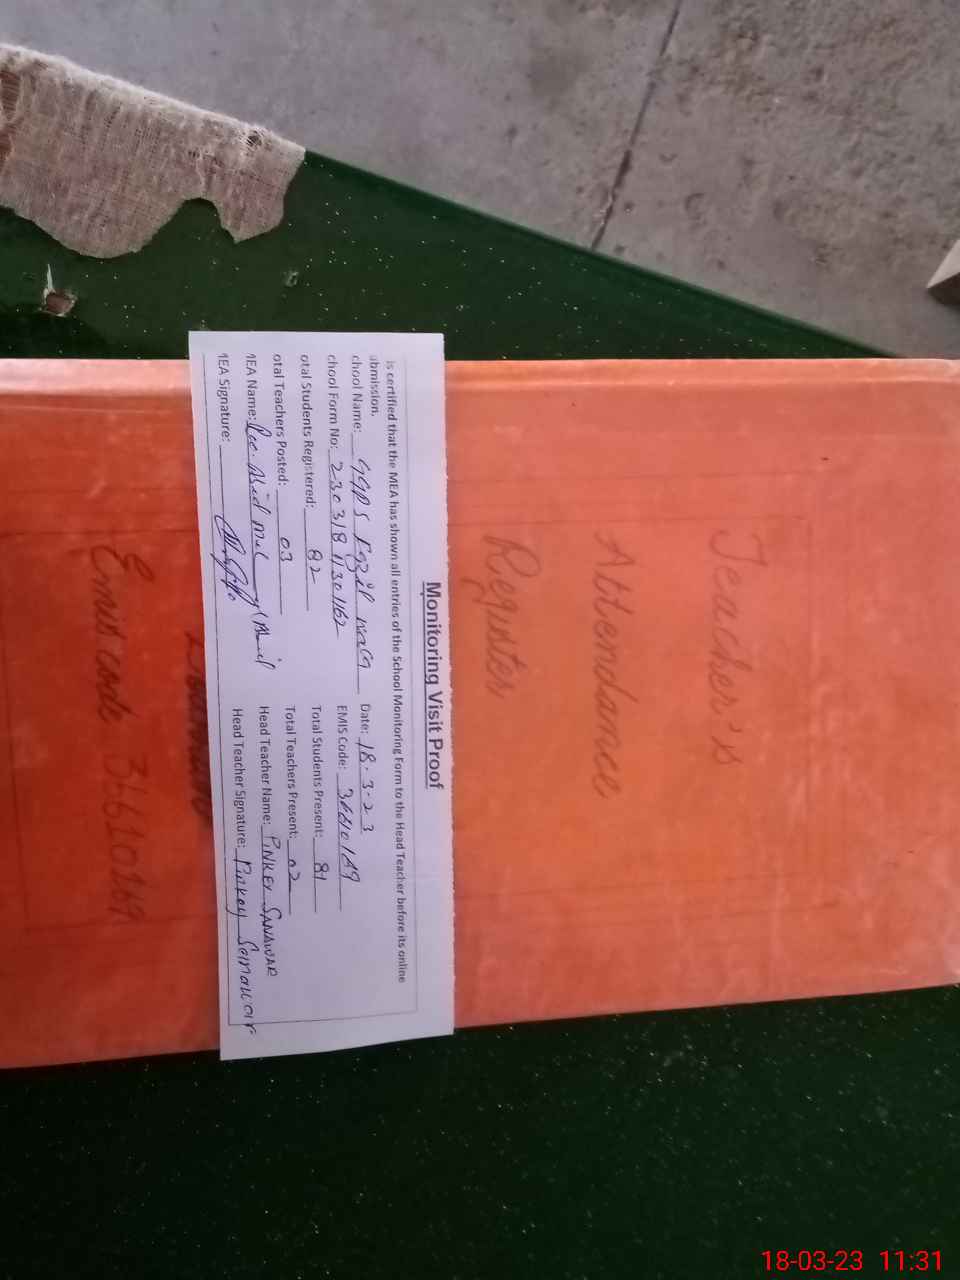 Teacher's
Attendance
Register
Monitoring Visit Proof
is certified that the MEA has shown all entries of the School Monitoring Form to the Head Teacher before its online
bmission.
chool Name: GGPS Fazil wala Date: 18-3-23
chool Form No: 230318 11301162 EMIS Code: 36610169
otal Students Registered: 82 Total Students Present: 81
otal Teachers Posted: 03 Total Teachers Present: 02
MEA Name: Abid Head Teacher Name: PINKEY SANAWAR
MEA Signature: Head Teacher Signature: Pinkey Sanawar
Emis code 36610169
18-03-23 11:31